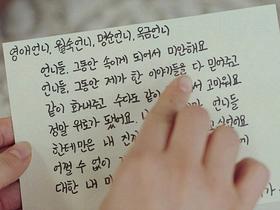 영애언니, 월수언니, 명순언니, 옥금언니
언니들, 그동안 속이게 되어서 미안해요
언니들, 그동안 제가 한 이야기들을 다 믿어주고
같이 화내주고 수다도 같이 서 고마워요
정말 위로가 됐어요. 언니들
한테만은 내 진 싶었어요
어쩔 수 없이
대한 내 마